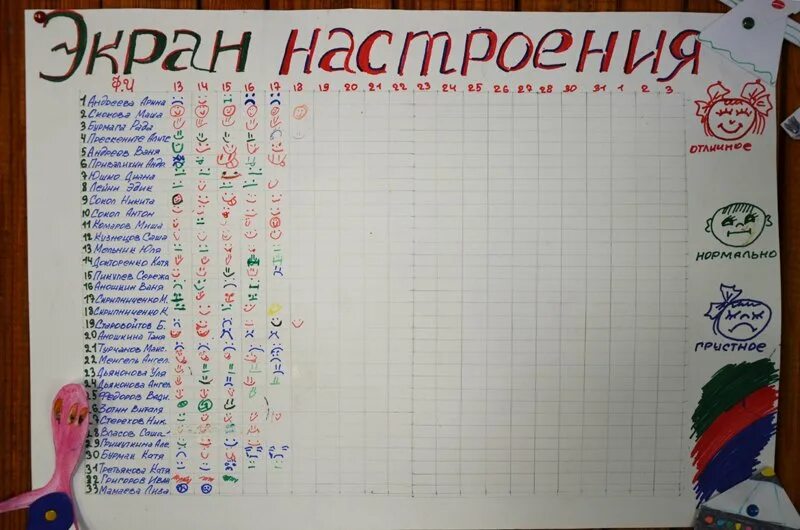 Экран настроения
Ф.И 13 14 15 16 17 18 19 20 21 22 23 24 25 26 27 28 30 31 1 2 3
1 Андреева Арина
2 Сиокова Маша
3 Бурмага Рада
4 Прескените
5 Андреев Ваня
6 Привалихин Андр.
7 Юшко Диана
8 Лейни Эдик
9 Сокол Никита
10 Сокол Антон
11 Комаров Миша
12 Кузнецов Саша
13 Мельник Юля
14 Докторенко Катя
15 Пикулев Сережа
16 Аношкин Ваня
17 Скрипниченко М.
18 Скрипниченко К.
19 Старовойтов Б.
20 Аношкина Таня
21 Турчанов Макс.
22 Менгель Ангел.
23 Дьяконова Уля
24 Дьяконова Ангел
5 Федоров Вади.
6 Зотин Виталя
7 Стерехов Ник.
28 Власов Саша
29 Гришуткина Але
30 Бурман Катя
31 Третьякова Катя
32 Григоров Иван
33 Мамаева Лиза.
отличное
нормально
грустное